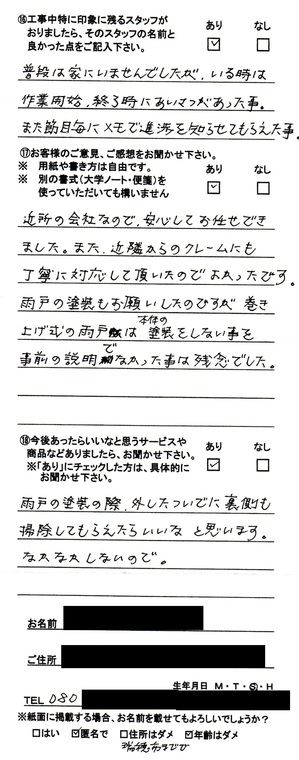 ⑯工事中特に印象に残るスタッフが
おりましたら、そのスタッフの名前と
良かった点をご記入下さい。
あり なし
普段は家にいませんでしたが、いる時は
作業開始、終了時にあいさつがあった事。
また節目毎にメモで進渉を知らせてもらえた事。
⑰お客様のご意見、ご感想をお聞かせ下さい。
※ 用紙や書き方は自由です。
※ 別の書式(大学ノート・便箋)を
使っていただいても構いません
あり なし
近所の会社なので、安心してお任せでき
ました。また、近隣からのクレームにも
丁寧に対応して頂いたのでよかったです。
雨戸の塗装もお願いしたのですが 巻き
上げ式の雨戸は 本体の塗装をしない事を
事前の説明でなかった事は残念でした。
⑱今後あったらいいなと思うサービスや
商品などありましたら、お聞かせ下さい。
※「あり」にチェックした方は、具体的に
お聞かせ下さい。
あり なし
雨戸の塗装の際、外したついでに裏側も
掃除してもらえたらいいな と思います。
なかなかしないので。
お名前
ご住所
生年月日 M・T・S・H
TEL 080
※紙面に掲載する場合、お名前を載せてもよろしいでしょうか?
はい 匿名で 住所はダメ 年齢はダメ
瑞穂市までで